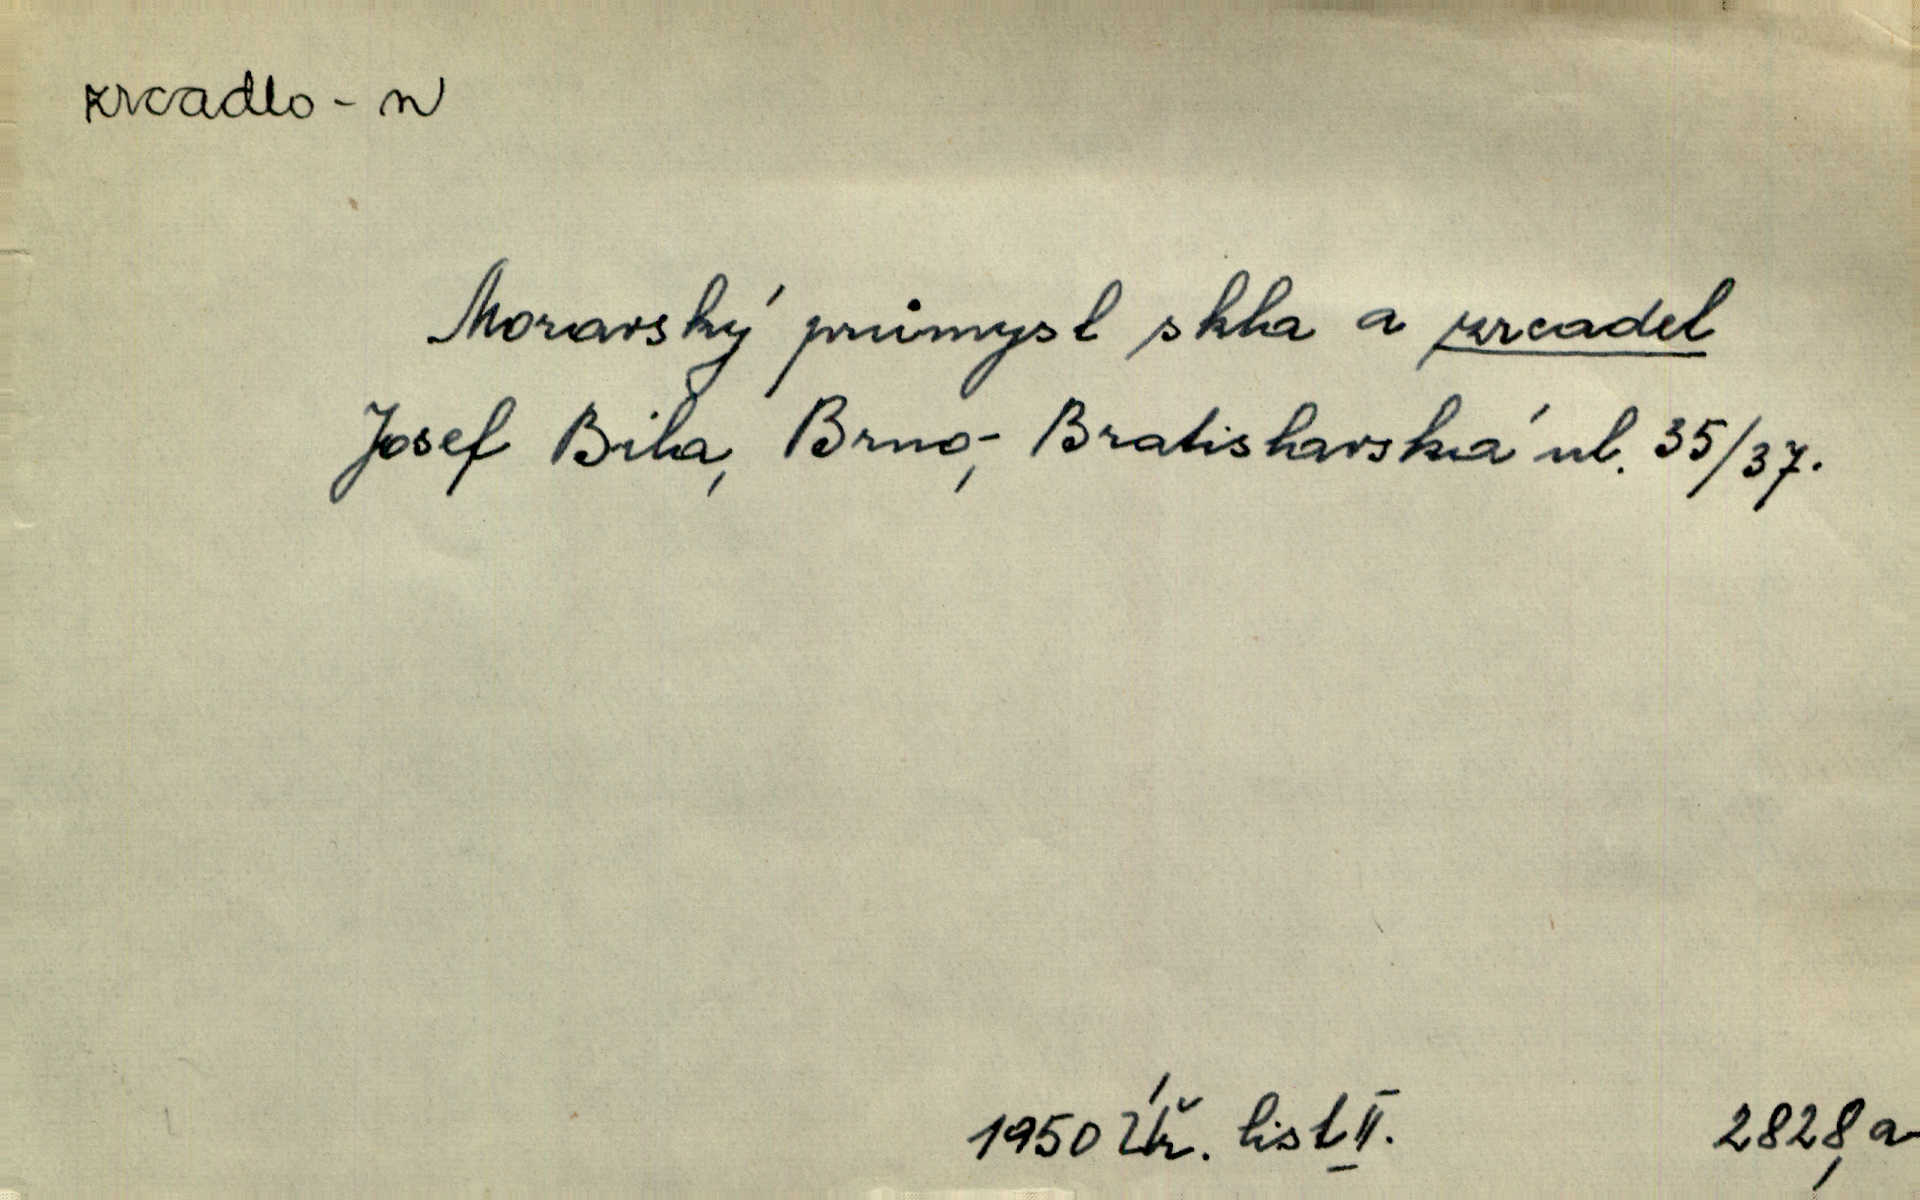 zrcadlo - n
Moravský průmysl skla a zrcadel
Josef Bila, Brno, Bratislavská ul. 35/37.
1950 Úř. list II. 2828, a